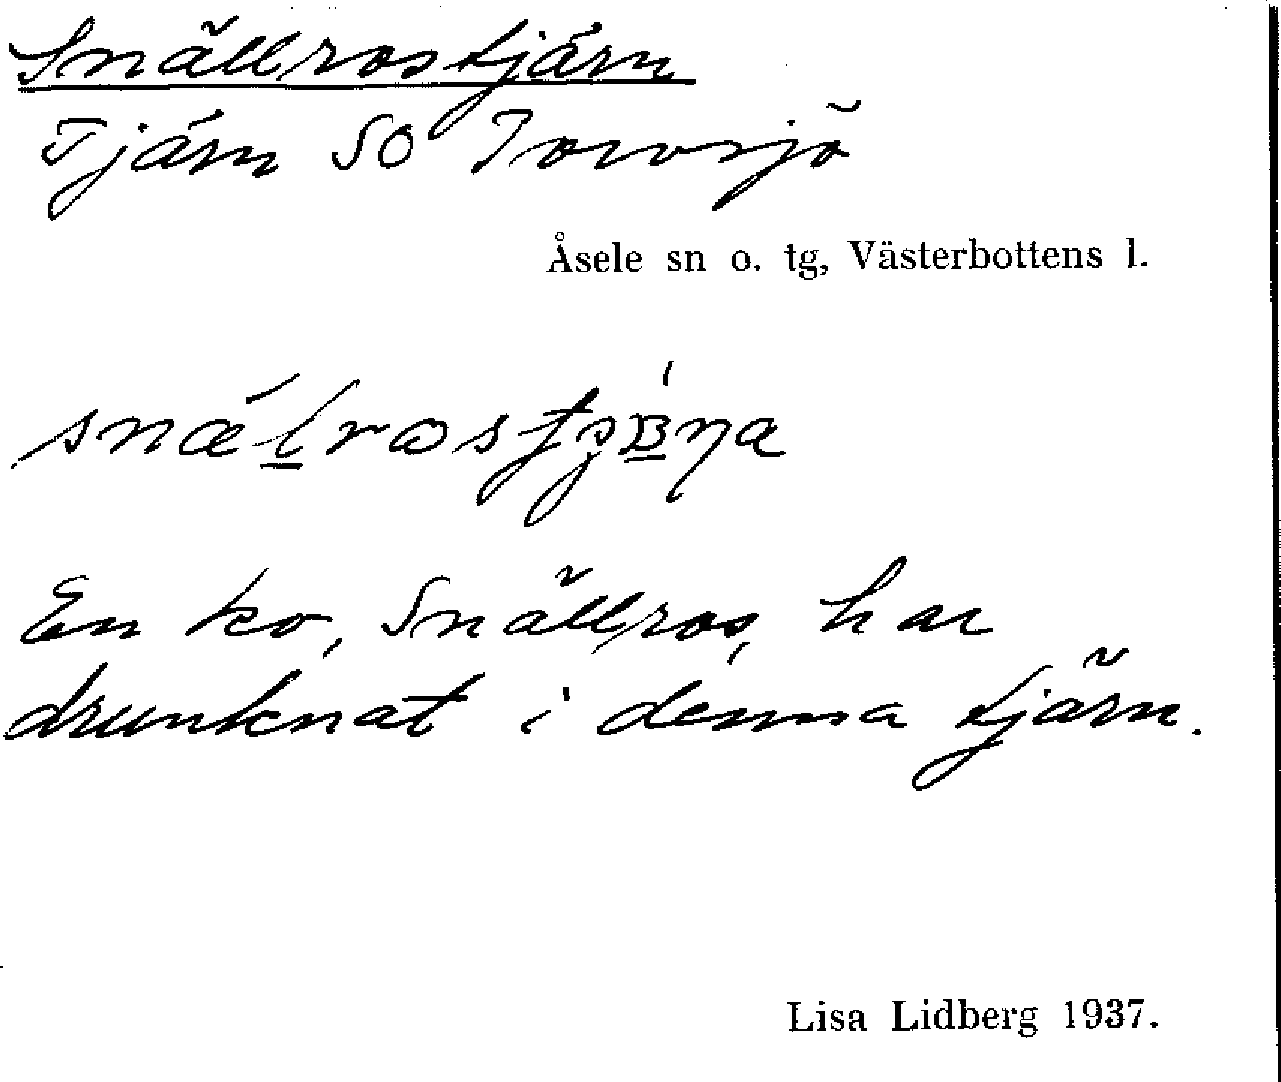 Snällrostjärn
Tjärn SO Torvsjö
Åsele sn o. tg, Västerbottens l.
En ko, Snällros, har
drunknat i denna tjärn.
Lisa Lidberg 1937.